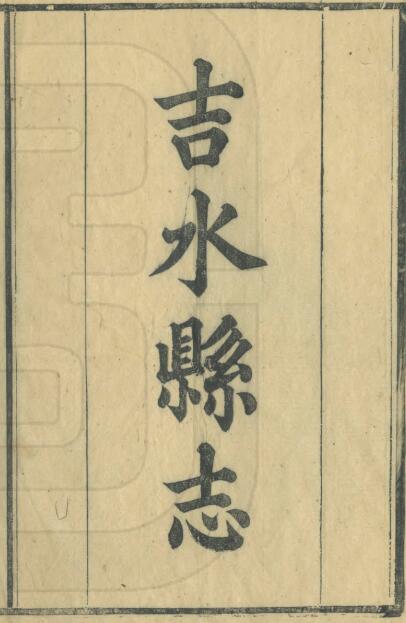 吉水縣志